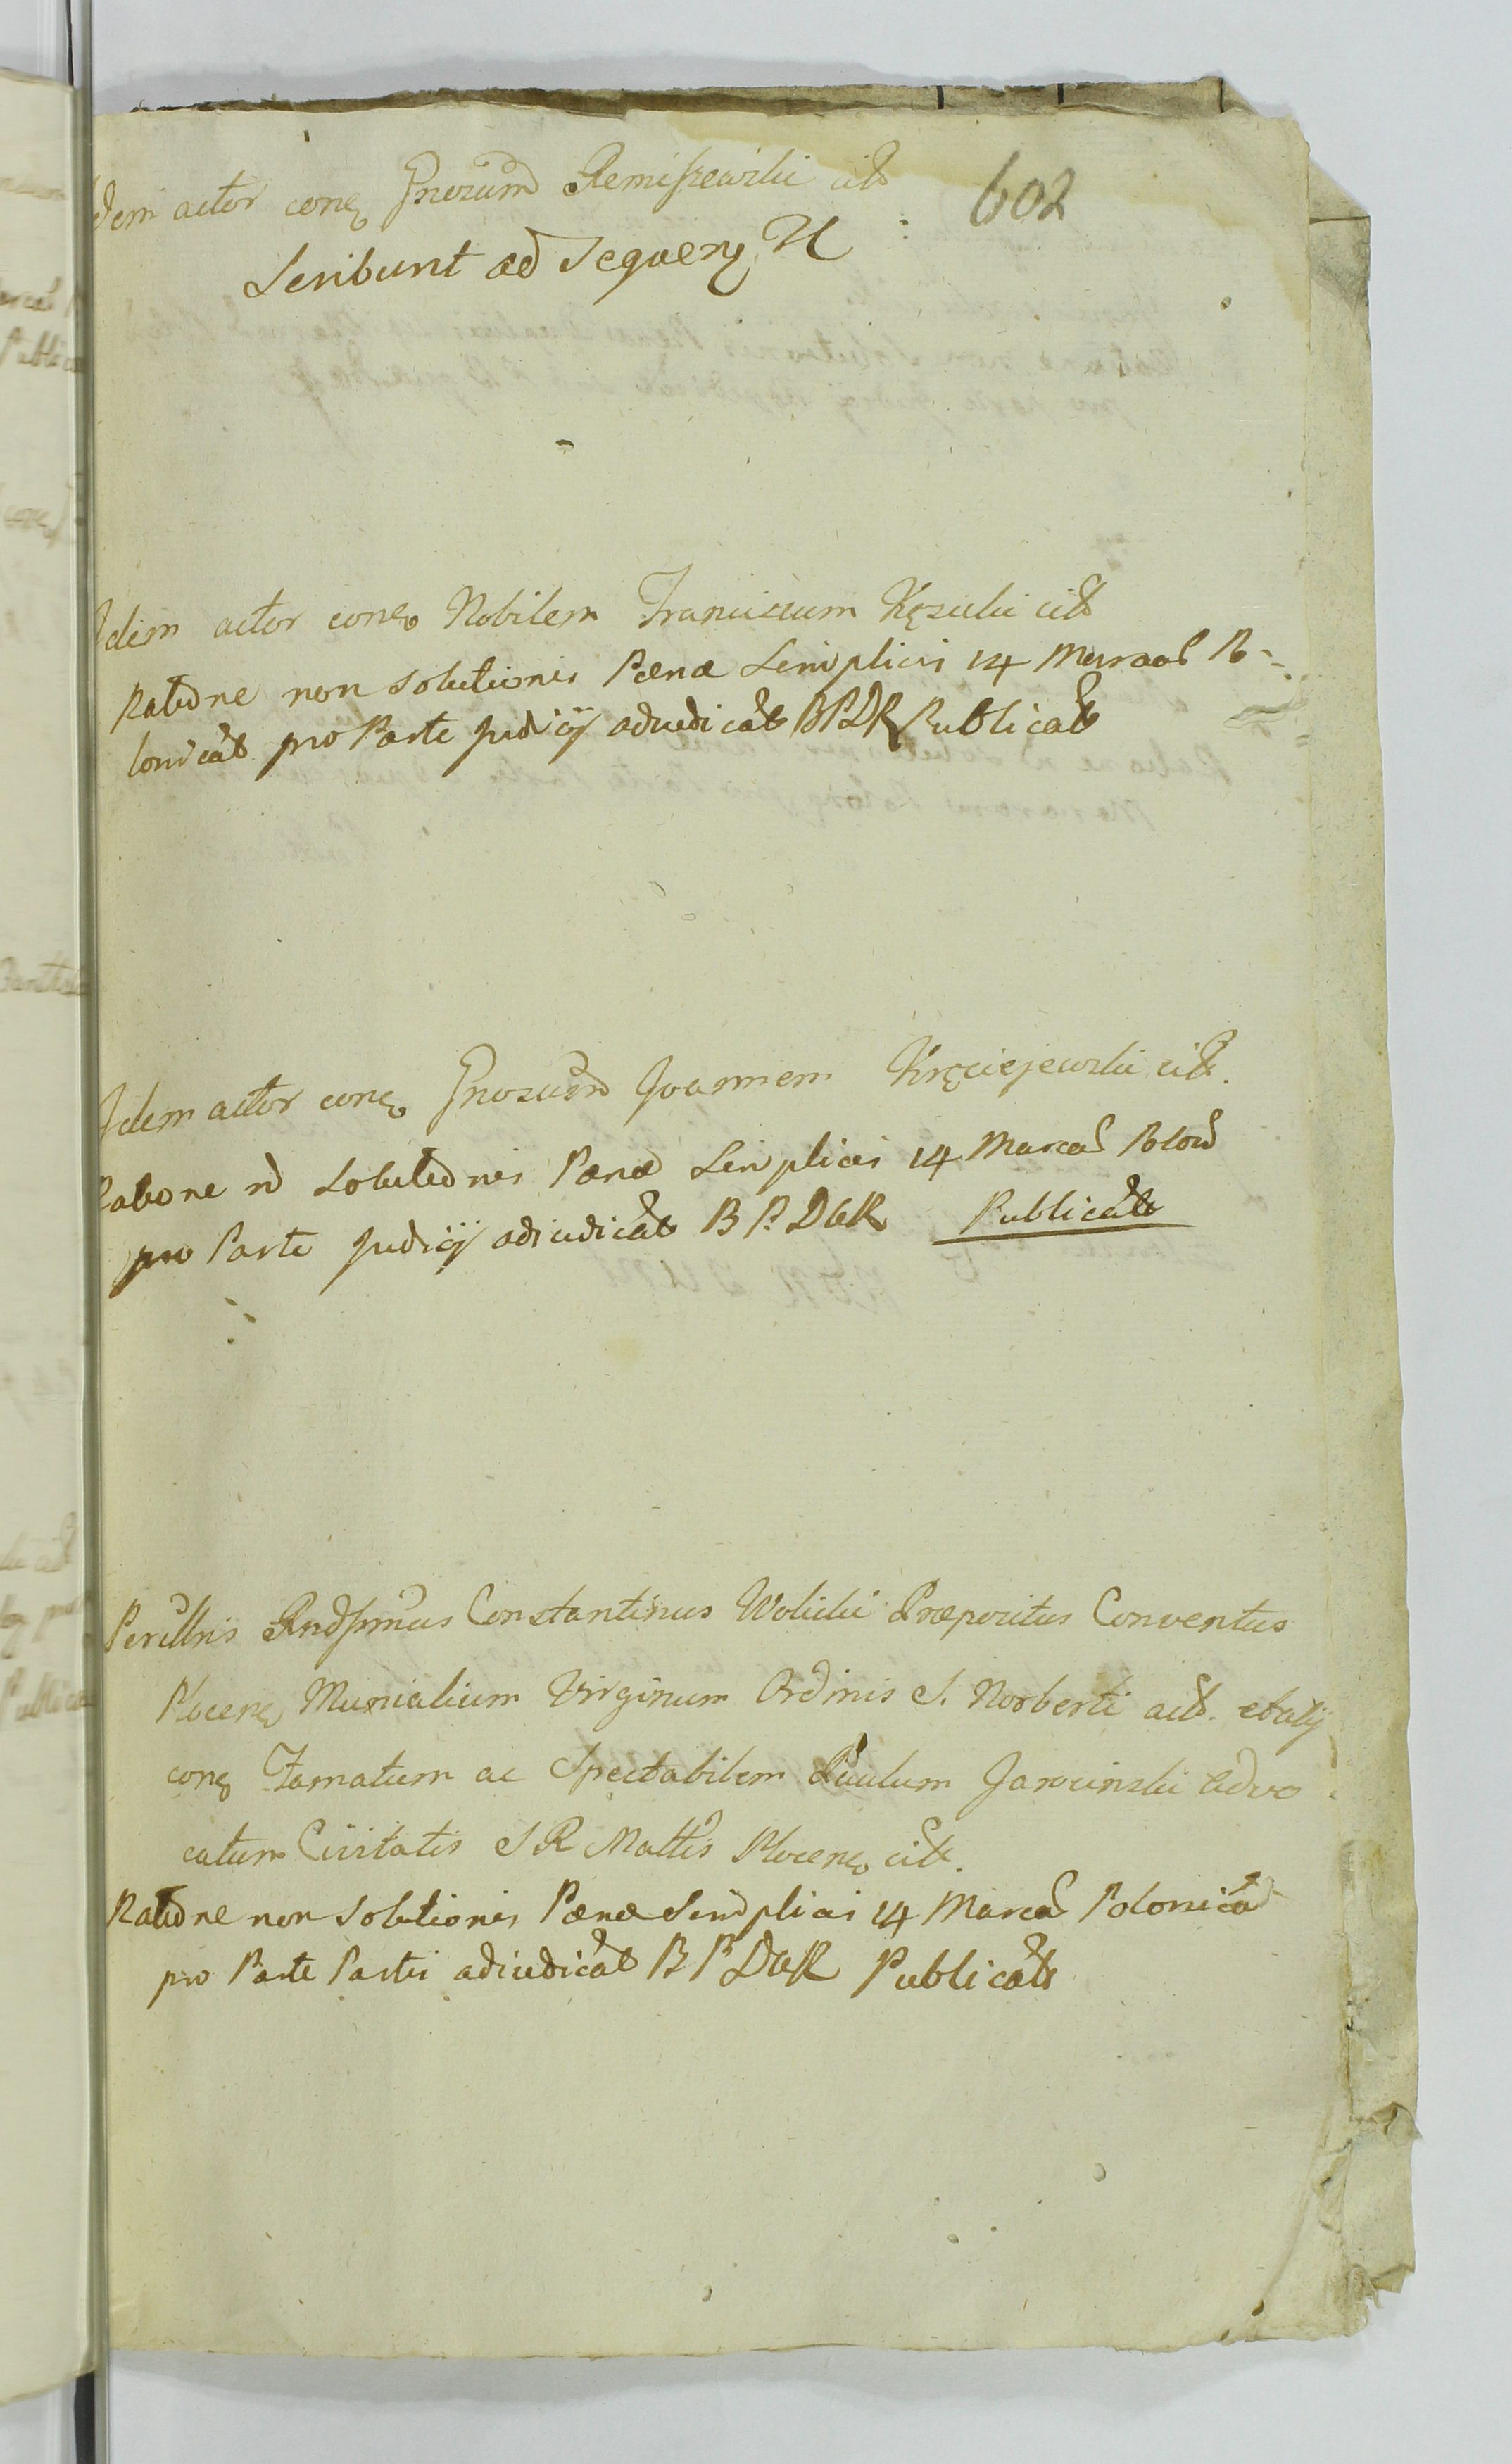 602
Idem actor conę Gnosum Remiszewski citt
Scribunt ad Sequenę
Idem actor conę Nobilem Franciscum Kęsicki citt
Ratione non solutionis Pænæ Simplicis 14 Marcar Po-
lonicar pro Parte Judicij adiudicat BPDR Publicatt
Idem actor conę Gnosum Joannem Kręciejewski citt.
Ratione n solutionis Pænæ Simplicis 14 Marcar Polon
pro Parte Judicij adiudicat B P. DUR Publicatt
Perillris Rndssimus Constantinus Wolicki Præpositus Conventus
Plocenę Monialium Virginum Ordinis S. Norberti act. et alij
conę Famatum ac Spectabilem Paulum Jarocinski Advo
catum Civitatis S R Mattis Plocenę citt.
Ratione non solutionis Pænæ Simplicis 14 Marcar Polonicar
pro Parte Partis adiudicat B P DUR Publicatt